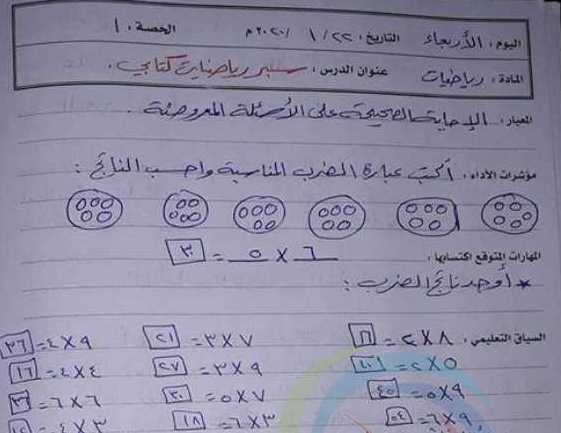 اليوم : الأربعاء التاريخ : ٢٢/ ١ /٢٠٢٠م الحصة : ١
المادة : رياضيات عنوان الدرس : سبر رياضيات كتابي .
المعيار : الإجابة الصحيحة على الأسئلة المعروضة .
مؤشرات الأداء : أكتب عبارة الضرب المناسبة واحسب الناتج :
٦ × ٥ = ٣٠
المهارات المتوقع اكتسابها :
* أوجد ناتج الضرب :
السياق التعليمي : ٨×٢= ١٦ ٧×٣= ٢١ ٩×٤= ٣٦
٥×٢= ١٠ ٩×٣= ٢٧ ٤×٤= ١٦
٩×٥= ٤٥ ٧×٥= ٦×٦= ٣٦
٩×٦= ٥٤ ٣×٦= ١٨ ٣×٤= ١٢